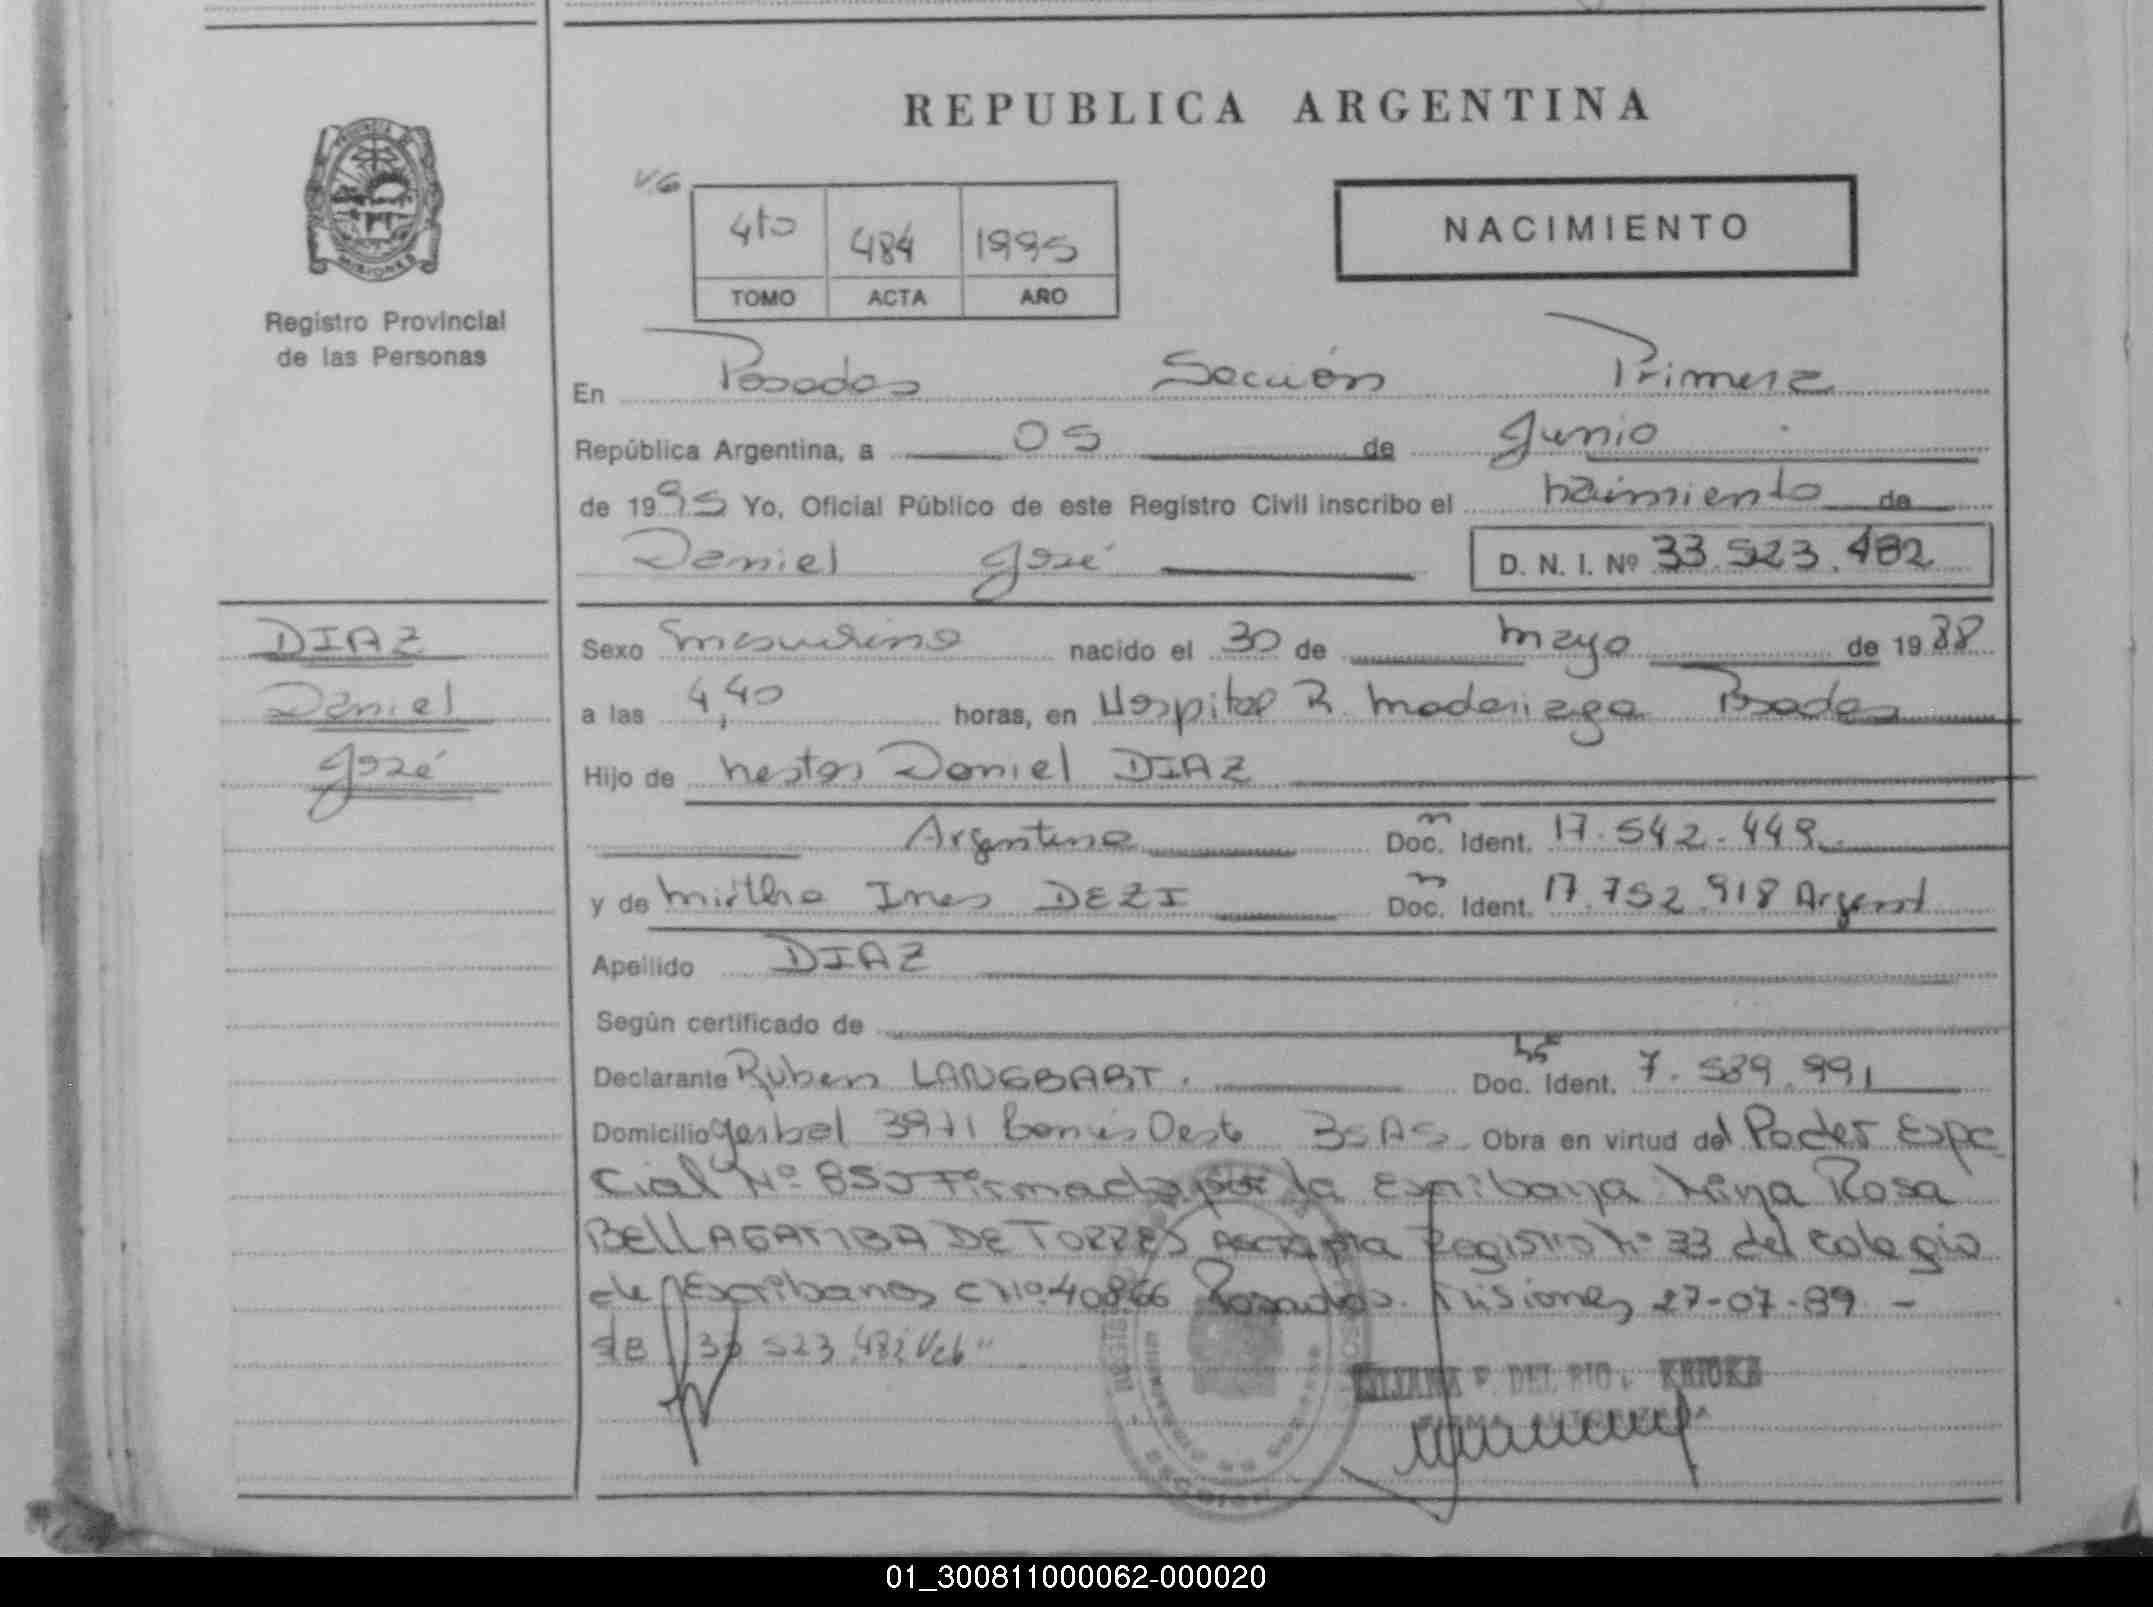 REPUBLICA ARGENTINA
V.G
4to 484 1995
TOMO ACTA AÑO
NACIMIENTO
Registro Provincial
de las Personas
En Posadas Sección Primera
República Argentina, a 05 de Junio
de 1995 Yo, Oficial Público de este Registro Civil inscribo el nacimiento de
Daniel José D. N. I. Nº 33.523.482
DIAZ
Daniel
José
Sexo masculino nacido el 30 de mayo de 1988
a las 4,40 horas, en Hospital R. Madariaga Posadas
Hijo de Nestor Daniel DIAZ
Argentina Doc. Ident. 17.542.449
y de Mirtha Ines DEZI Doc. Ident. 17.752.918 Argent
Apellido DIAZ
Según certificado de
Declarante Ruben LANGBART. Doc. Ident. 7.589.991
Domicilio Yerbal 3971 Bs AS Obra en virtud del Poder Espe
cial Nº Firmado por la Escribana Rosa
BELLAGAMBA DE TORRES Registro Nº 33 del colegio
de Escribanos c Nº 40866 Posadas. Misiones 27-07-89 -
33 523 482
DEL RIO
01_300811000062-000020